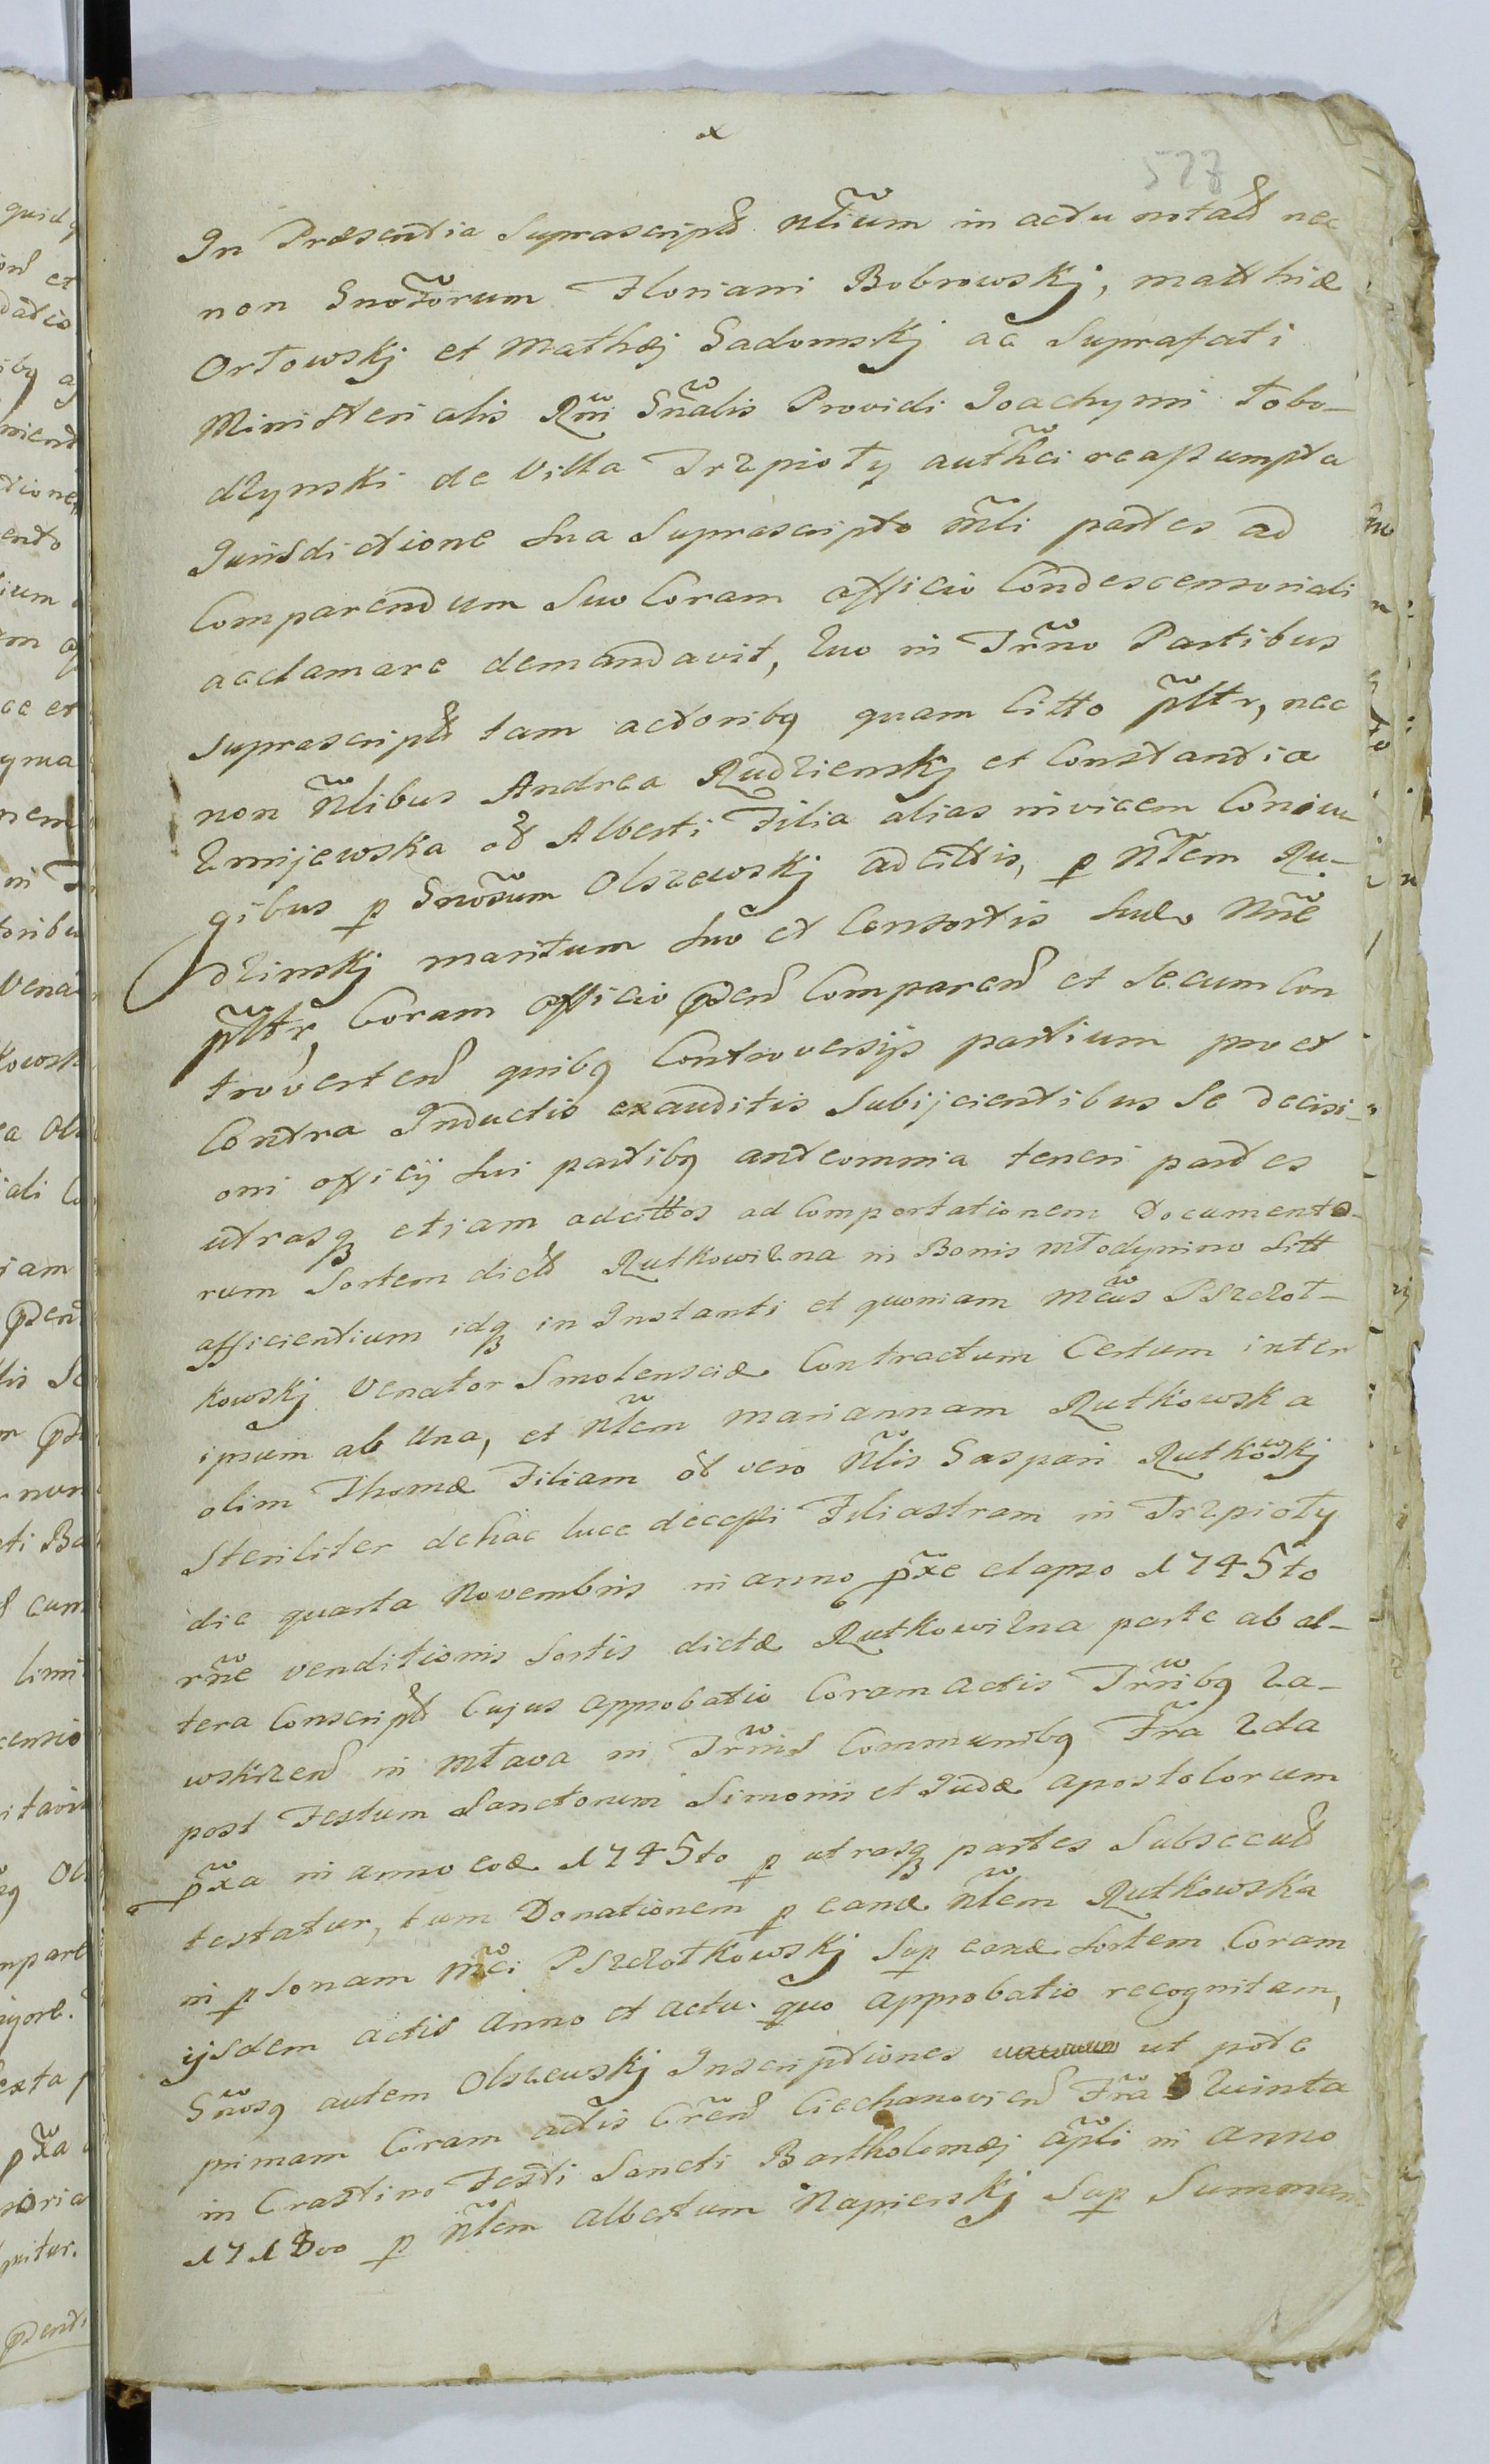 578
In Præsentia Suprascript̄ Nl̃ium in actu notat̄ nec
non Gnõrorum Floriani Bobrowskj, Matthiæ
Orłowskj et Mathæj Sadowskj ac Suprafati
Ministerialis Rñi Gñalis Providi Joachymi Łobo-
dzynski de Villa Trzpioły auth̃ci reassumpta
Jurisdictione sua Suprascripto m̃li partes ad
Comparendum suo Coram officio Condescensoriali
acclamare demandavit, Quo in Tr̃no Partibus
Suprascript̄ tam actoribq quam Citto p̃ltr, nec
non Ñlibus Andrea Rudzienskj et Constantia
Zmijewska ol̄ Alberti Filia alias invicem Coniu-
gibus p Gnõsum Olszewskj adcittis, p Nl̃em Ru-
dzinskj maritum suõ et Consortis suæ Nñe
p̃ltr, Coram officio p̄den̄ Comparen̄ et Secum Con
troverten̄ quibq Controversijs partium pro et
Contra Inductis exauditis Subijcientibus Se decisi-
oni officij sui partibq anteomnia teneri partes
utrasq etiam adcittos ad Comportationem Documento-
rum Sortem dict̄ Rutkowizna in Bonis Młodynino Sitt
afficientium idq in Instanti et quoniam Mcũs Pszczoł-
kowskj Venator Smolensciæ Contractum Certum inter
ipsum ab Una, et Nl̃em Mariannam Rutkowska
olim Thomæ Filiam ol̄ vero Ñlis Gaspari Rutkowskj
Steriliter de hac luce decessi Filiastram in Trzpioły
die quarta Novembris in anno p̃xe elapso 1745to
rñe Venditionis Sortis dictæ Rutkowizna parte ab al-
tera Conscript̄ Cujus approbatio Coram Actis Tr̃ribq Za-
wskrzen̄ in Mława in Tr̃nis Communibq Fr̃a 2da
post Festum Sanctorum Simonis et Judæ Apostolorum
p̃xa in anno eoḋ 1745to p utrasq partes Subsecut̄
testatur, tum Donationem p eanḋ Nl̃em Rutkowska
in psonam Mc̃i Pszczołkowskj Sup eanḋ Sortem Coram
ijsdem actis Anno et actu quo approbatio recognitam,
Gñosq autem Olszewskj Inscriptiones ut pote
primam Coram actis Cr̃en̄ Ciechanovien̄ Fr̃a Quinta
in Crastino Festi Sancti Bartholomæj ap̃li in anno
1718vo p Nl̃em Albertum Napierskj Sup Summam